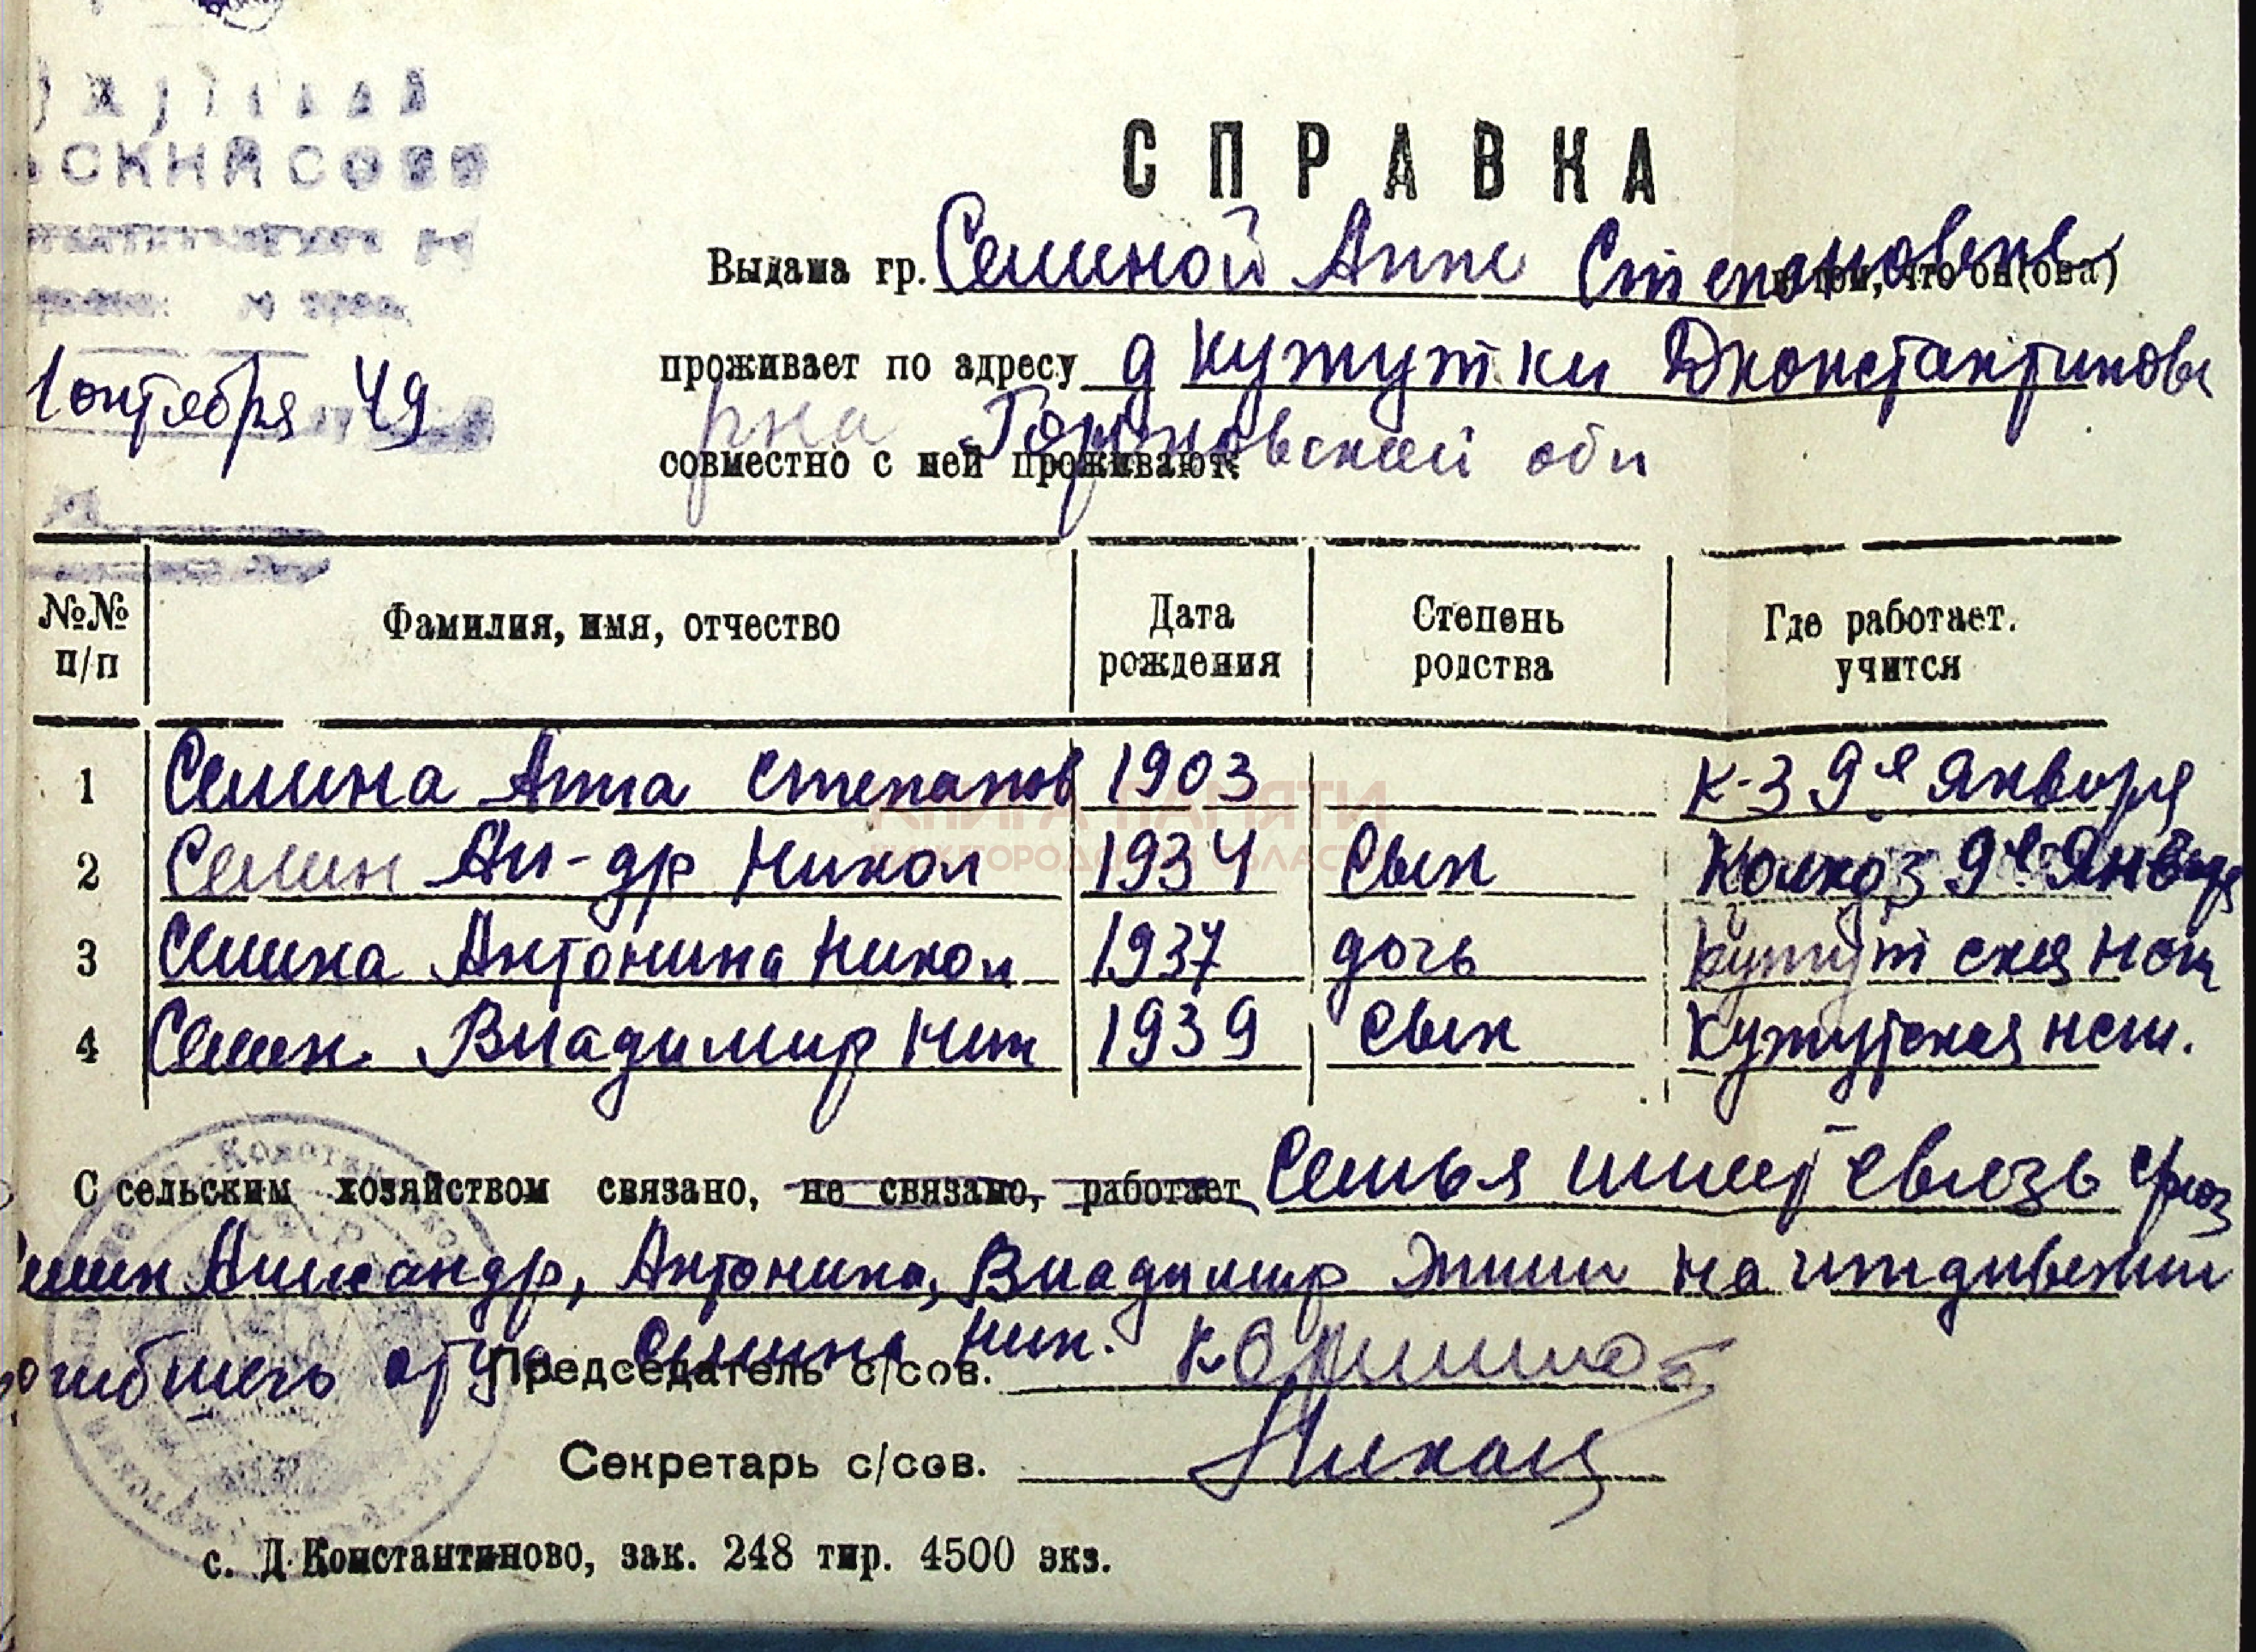 СКИЙ СОВЕТ
СПРАВКА
Выдана гр. Семиной Анне Степановне в том, что он(она)
1 октября 49
проживает по адресу д Кужутки Дконстантиновс
рна Горьковской обл
совместно с ней проживают:
№№ п/п Фамилия, имя, отчество Дата рождения Степень родства Где работает. учится
1 Семина Анна Степанов 1903 К-З 9е Января
2 Семин Ал-др Никол 1934 сын Колхоз 9е Января
3 Семина Антонина Никол 1937 дочь Кужутская нсш
4 Семин Владимир Ник 1939 сын Кужутская нсш.
С сельским хозяйством связано, не связано, работает Семья имеет связь с/хоз
Семин Александр, Антонина, Владимир жили на иждивении
погибшего отца Семина Ник.
Председатель с/сов.
Секретарь с/сов.
с. Д-Константиново, зак. 248 тир. 4500 экз.
КНИГА ПАМЯТИ
НИЖЕГОРОДСКОЙ ОБЛАСТИ